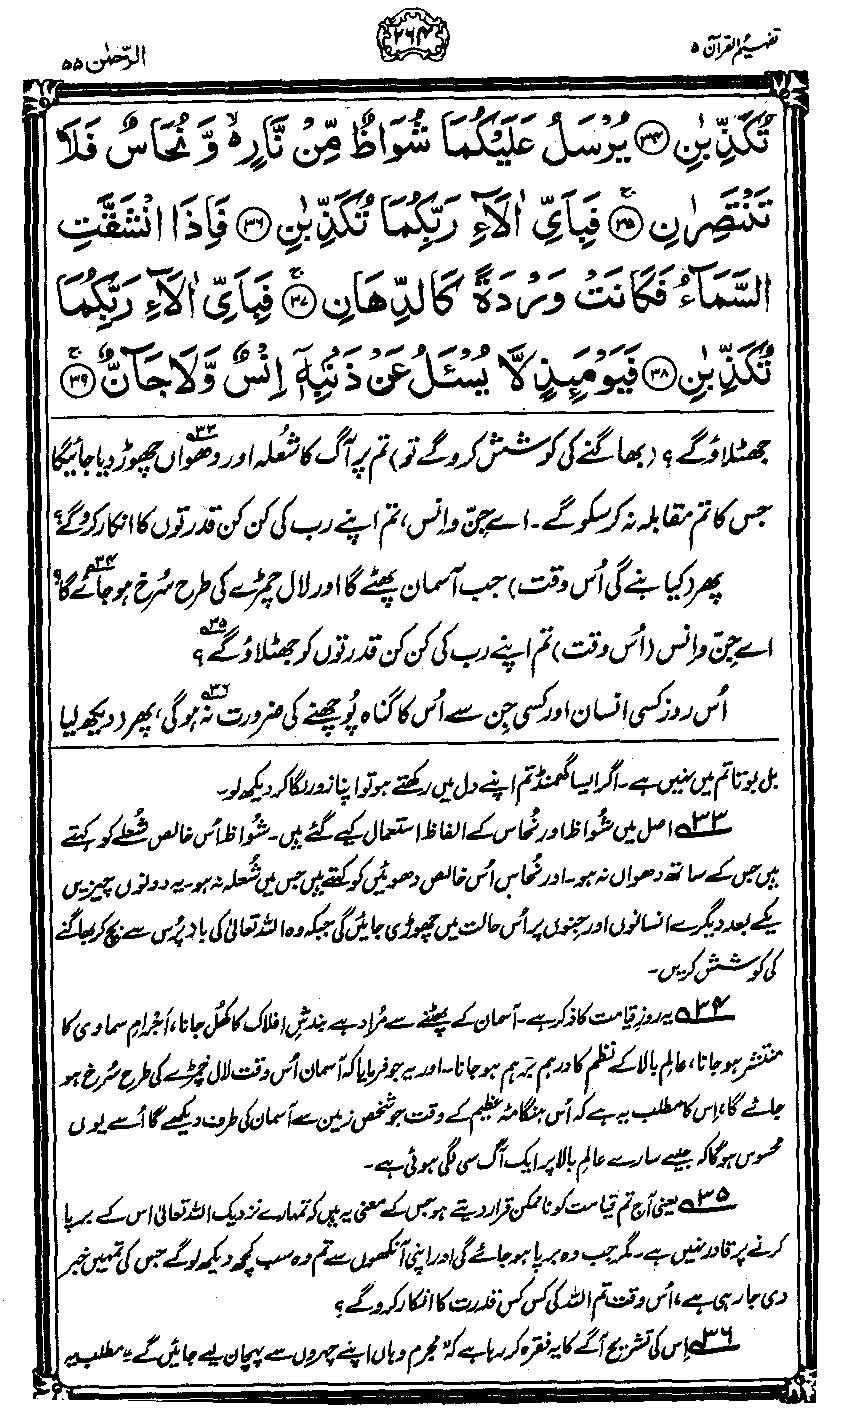 تفہیم القرآن ۵
۲۶۴
الرّحمٰن ۵۵
تُكَذِّبٰنِ ﴿۳۴﴾ يُرْسَلُ عَلَيْكُمَا شُوَاظٌ مِّنْ نَّارٍ ۙ وَّ نُحَاسٌ فَلَا
تَنْتَصِرٰنِ ﴿۳۵﴾ فَبِاَيِّ اٰلَآءِ رَبِّكُمَا تُكَذِّبٰنِ ﴿۳۶﴾ فَاِذَا انْشَقَّتِ
السَّمَآءُ فَكَانَتْ وَرْدَةً كَالدِّهَانِ ﴿۳۷﴾ فَبِاَيِّ اٰلَآءِ رَبِّكُمَا
تُكَذِّبٰنِ ﴿۳۸﴾ فَيَوْمَىِٕذٍ لَّا يُسْـَٔلُ عَنْ ذَنْۢبِهٖۤ اِنْسٌ وَّلَا جَآنٌّ ﴿۳۹﴾
جھٹلاؤ گے؟ (بھاگنے کی کوشش کرو گے تو) تم پر آگ کا شعلہ اور دھواں ۳۳؎ چھوڑ دیا جائیگا
جس کا تم مقابلہ نہ کر سکو گے۔ اے جِنّ و انس، تم اپنے رب کی کن کن قدرتوں کا انکار کرو گے؟
پھر (کیا بنے گی اُس وقت) جب آسمان پھٹے گا اور لال چمڑے کی طرح سُرخ ہو جائے گا ۳۴؎؟
اے جِنّ و انس (اُس وقت) تم اپنے رب کی کن کن قدرتوں کو جھٹلاؤ گے ۳۵؎؟
اُس روز کسی انسان اور کسی جِن سے اُس کا گناہ پُوچھنے کی ضرورت نہ ہوگی ۳۶؎، پھر (دیکھ لیا
بل بوتا تم میں نہیں ہے۔ اگر ایسا گھمنڈ تم اپنے دل میں رکھتے ہو تو اپنا زور لگا کر دیکھ لو۔
۳۳؎ اصل میں شُواظ اور نُحاس کے الفاظ استعمال کیے گئے ہیں۔ شُواظ اُس خالص شُعلے کو کہتے
ہیں جس کے ساتھ دھواں نہ ہو۔ اور نُحاس اُس خالص دھوئیں کو کہتے ہیں جس میں شُعلہ نہ ہو۔ یہ دونوں چیزیں
یکے بعد دیگرے انسانوں اور جِنوں پر اُس حالت میں چھوڑی جائیں گی جبکہ وہ اللہ تعالیٰ کی باز پُرس سے بچ کر بھاگنے
کی کوشش کریں۔
۳۴؎ یہ روزِ قیامت کا ذکر ہے۔ آسمان کے پھٹنے سے مُراد ہے بندشِ افلاک کا کھُل جانا، اَجرامِ سماوی کا
منتشر ہو جانا، عالمِ بالا کے نظم کا درہم برہم ہو جانا۔ اور یہ جو فرمایا کہ آسمان اُس وقت لال چمڑے کی طرح سُرخ ہو
جائے گا، اِس کا مطلب یہ ہے کہ اُس ہنگامۂ عظیم کے وقت جو شخص زمین سے آسمان کی طرف دیکھے گا اُسے یوں
محسوس ہوگا کہ جیسے سارے عالمِ بالا پر ایک آگ سی لگی ہوئی ہے۔
۳۵؎ یعنی آج تم قیامت کو ناممکن قرار دیتے ہو جس کے معنی یہ ہیں کہ تمہارے نزدیک اللہ تعالیٰ اس کے برپا
کرنے پر قادر نہیں ہے۔ مگر جب وہ برپا ہو جائے گی اور اپنی آنکھوں سے تم وہ سب کچھ دیکھ لو گے جس کی تمہیں خبر
دی جا رہی ہے، اُس وقت تم اللہ کی کس کس قدرت کا انکار کرو گے؟
۳۶؎ اِس کی تشریح آگے کا یہ فقرہ کر رہا ہے کہ "مجرم وہاں اپنے چہروں سے پہچان لیے جائیں گے"۔ مطلب یہ